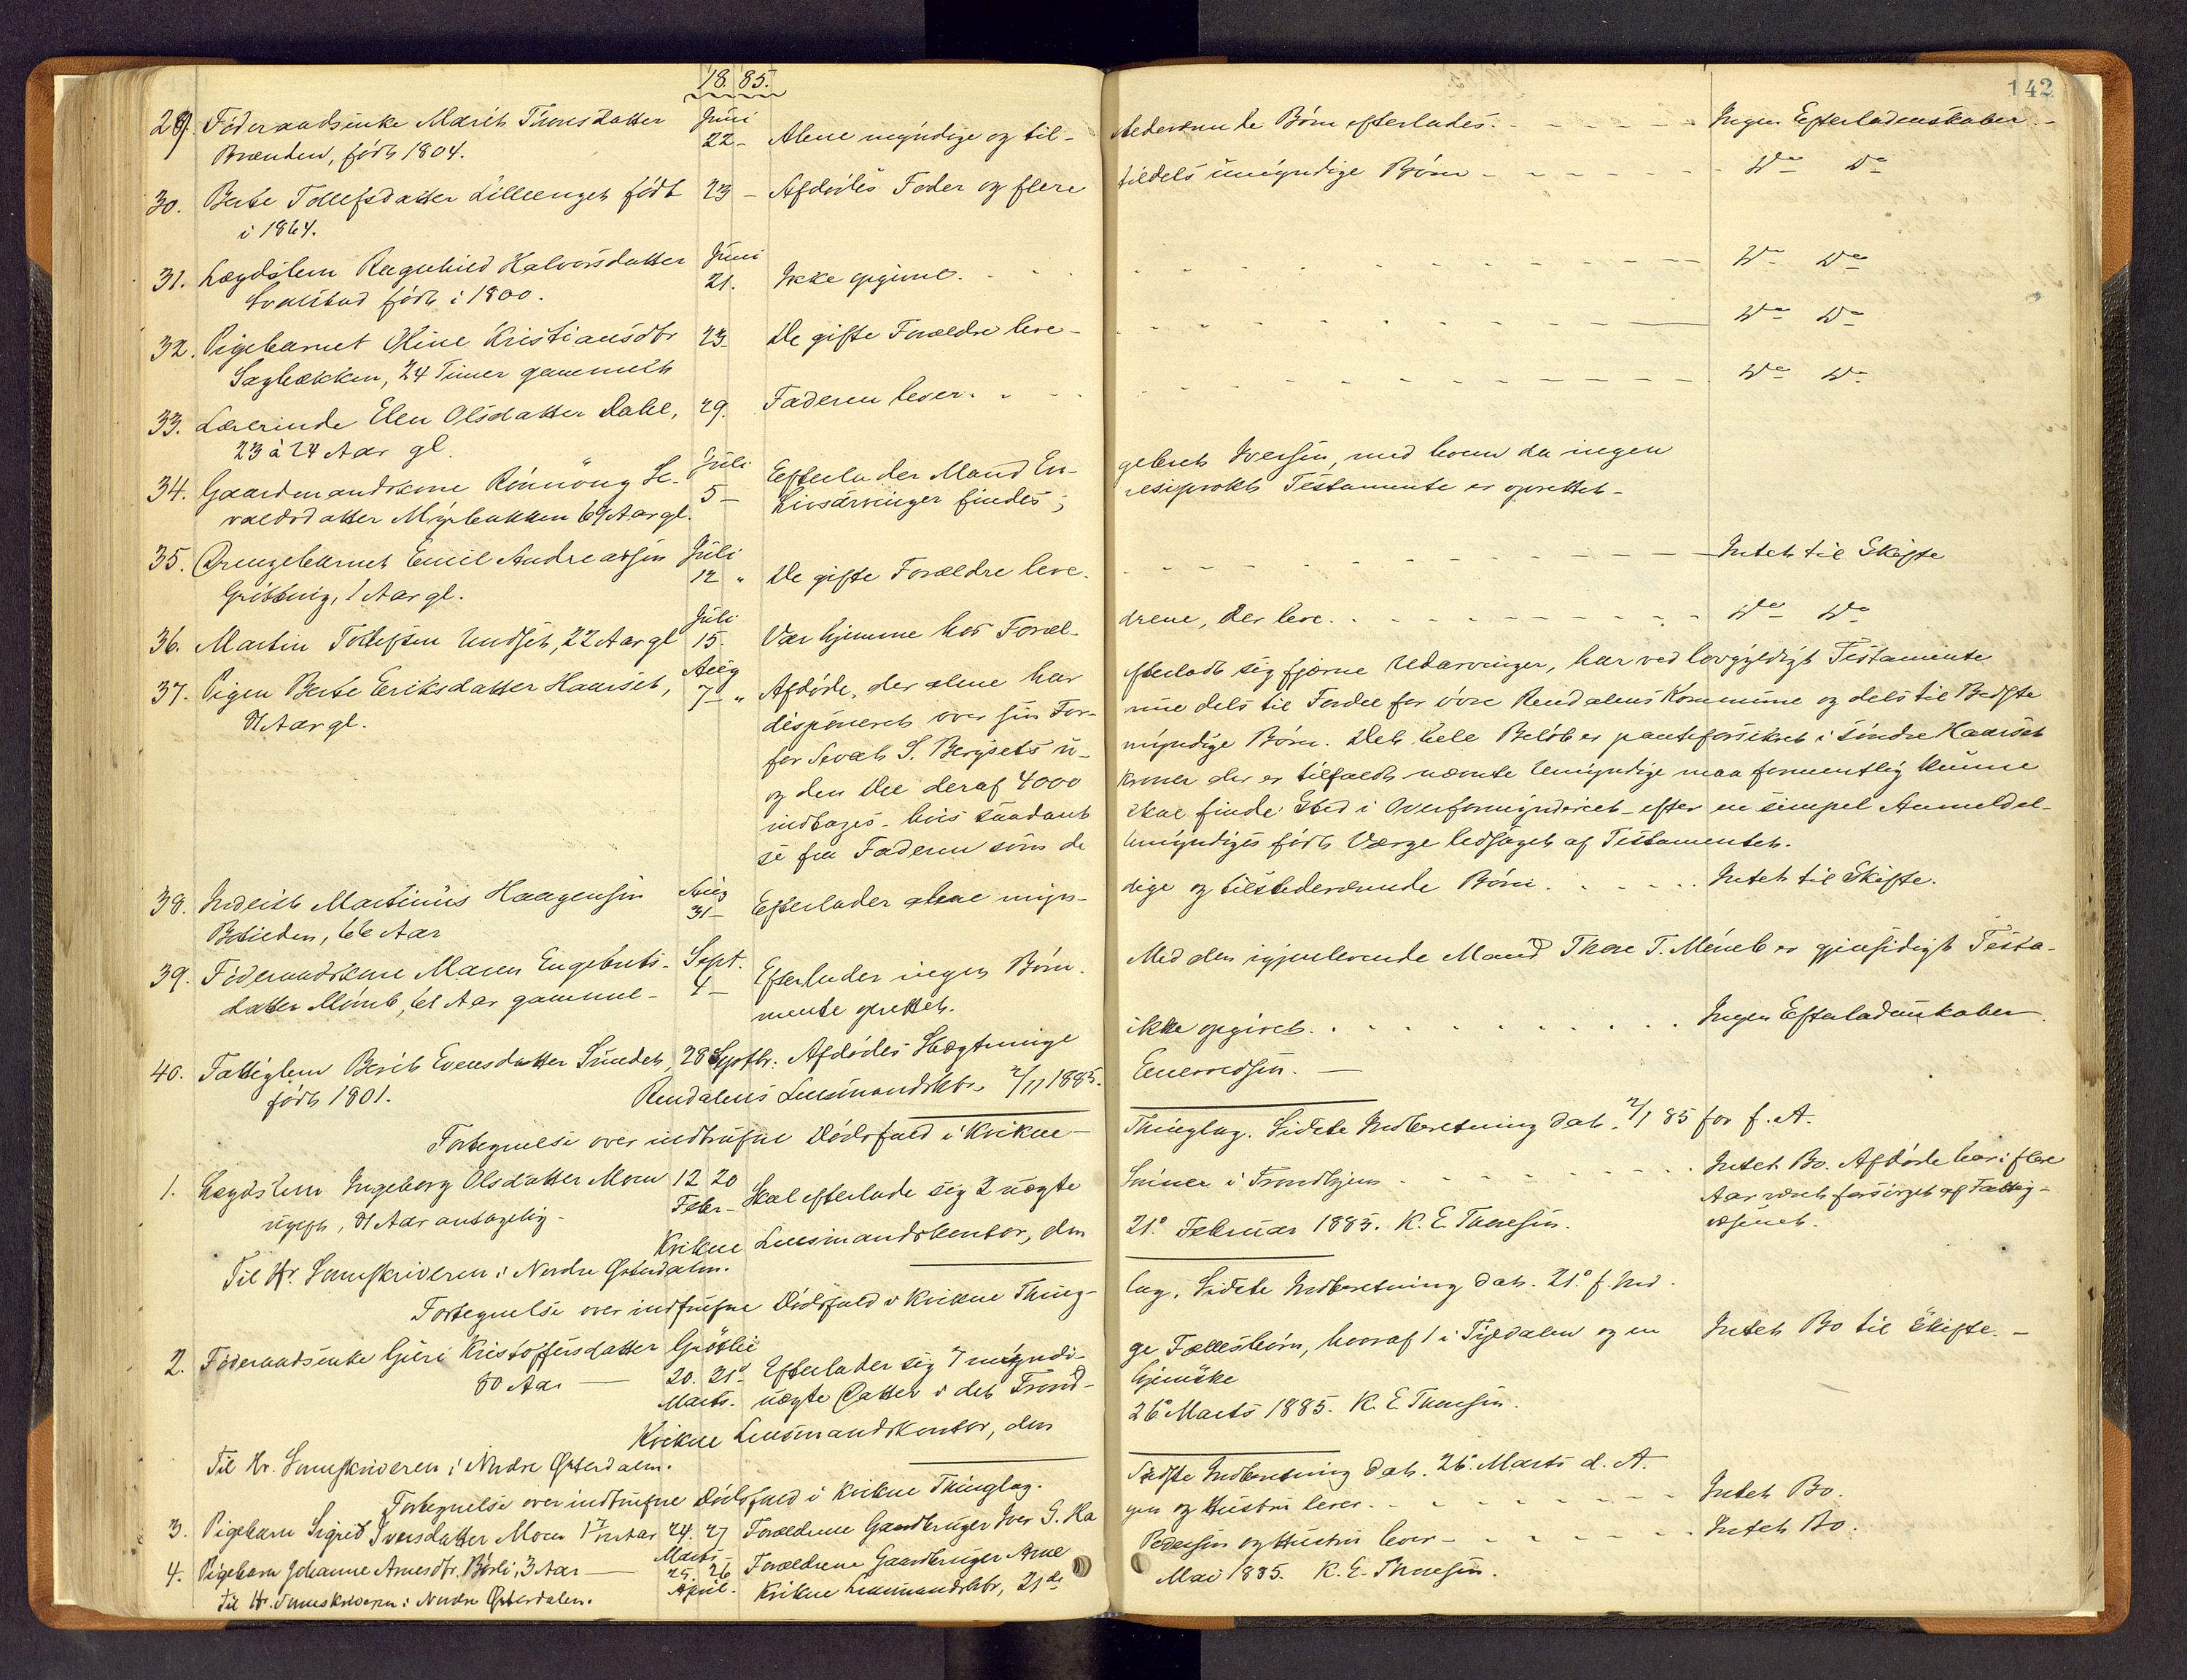 18 85.
142
29. Föderaadsenke Marit Tronsdatter Juni
Brænden, født 1804. 22 - Alene myndige og til- stedeværende Børn efterlades. - Ingen Efterladenskaber -
30. Berte Tollefsdatter Lilleenget født 23 - Afdödes Fader og flere tildels umyndige Børn - Do Do
i 1864.
31. Lægdslem Ragnhild Halvorsdatter Juni
født i 1800. 21. Ikke opgivne. - Do Do
32. Pigebarnet Oline Kristiansdtr 23 De gifte Forældre leve - Do Do
Sagbækken, 24 Timer gammelt
33. Lærerinde Elen Olsdatter Dahl, 29. Faderen lever. - Do Do
23 à 24 Aar gl.
34. Gaardmandskone Rönnoug Se- Juli Efterlader Mand En- gebret Iversen, med hvem da ingen
valdsdatter Myrbakken 69 Aar gl. 5 - Livsarvinger findes; resiprokt Testamente er oprettet -
35. Drengebarnet Emil Andreassen Juli
1 Aar gl. 12 " De gifte Forældre leve. - Intet til Skifte
36. Martin Tollefsen Undset, 22 Aar gl Juli 15. Var hjemme hos Foræl- drene, der leve. - Do Do
37. Pigen Berte Eriksdatter Haarset, Aug 7 - " Afdøde, der alene har efterladt sig fjerne Udarvinger, har ved lovgyldigt Testamente
Aar gl. disponeret over sin For- mue dels til Fordel for övre Rendalens Kommune og dels til Bedste
for Sevat S. Bergsets u- myndige Børn. Det hele Beløb er panteforsikret i söndre Haarset
og den Del deraf 4000 Kroner der er tilfaldt nævnte Umyndige maa formentlig kunne
indtages - hvis saadant skal finde Sted i Overformynderiet - efter en simpel Anmeldel-
se fra Faderen som de Umyndiges födte Værge ledsaget af Testamentet.
38. Inderst Martinus Haagensen Aug
66 Aar 31 - Efterlader alene myn- dige og tilstedeværende Børn. - Intet til Skifte.
39. Föderaadskone Maren Engebrets- Sept. Efterlader ingen Børn. Med den igjenlevende Mand Thore T. er gjensidigt Testa-
datter 61 Aar gammel - 4 - mente oprettet.
40. Fattiglem Berit Evensdatter Sundet, 28 Septbr. Afdödes Slægtninge ikke opgivet. - Ingen Efterladenskaber.
født 1801. Rendalens Lensmandsktr. 2/11 1885. Enevoldsen. -
Fortegnelse over indtrufne Dödsfald i Kvikne - Thinglag. Sidste Indberetning dat. 2/1 85 for f. A.
1. Lægdslem Ingeborg Olsdatter Moen 12 20 Skal efterlade sig 2 uægte Sönner i Trondhjem - Intet Bo. Afdöde har i flere
ugift, Aar antagelig - Febr - Aar været forsörget af Fattig-
Kvikne Lensmandskontor, den 21o Februar 1885. K. E. Thoresen. væsenet.
Til Hr. Sorenskriveren i Nordre Østerdalen.
Fortegnelse over indtrufne Dödsfald i Kvikne Thing- lag. Sidste Indberetning dat. 21o f. Md.
2. Föderaadsenke Guri Kristoffersdatter Grötlie
80 Aar - 20. 21d Efterlader sig 7 myndi- ge Fællesbörn, hvoraf 1 i Tyldalen og en Intet Bo til Skifte. -
Marts. uægte Datter i det Trond- hjemske
Kvikne Lensmandskontor, den 26o Marts 1885. K. E. Thoresen.
Til Hr. Sorenskriveren i Nordre Østerdalen.
Fortegnelse over indtrufne Dödsfald i Kvikne Thinglag. Sidste Indberetning dat. 26. Marts d. A.
3. Pigebarn Sigrid Iversdatter Moen 24. 27 Forældrene Gaardbruger Iver G. Ha gen og Hustru lever. - Intet Bo.
Marts -
4. Pigebarn Johanne Arnesdtr. Börli, 3 Aar - 25. 26 Forældrene Gaardbruger Arne Pedersen og Hustru lever - Intet Bo.
Til Hr. Sorenskriveren i Nordre Østerdalen. April. Kvikne Lensmandsktr, 21de Mai 1885. K. E. Thoresen.